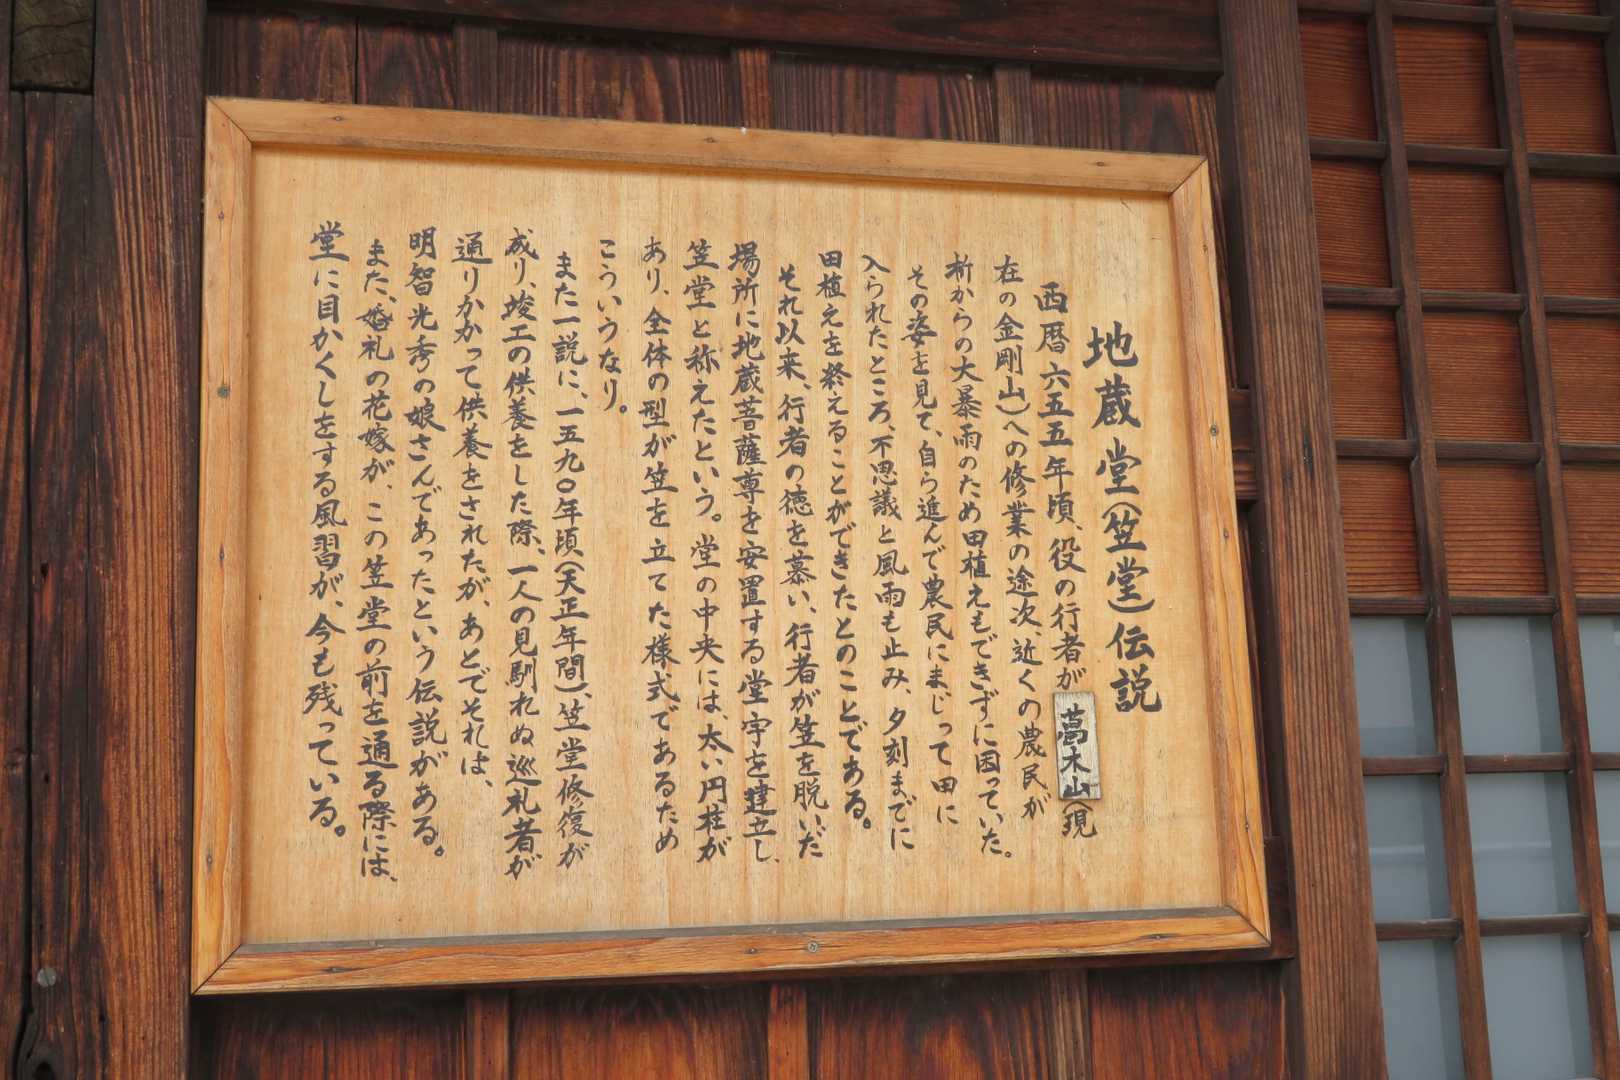 地蔵堂(笠堂)伝説
西暦六五五年頃、役の行者が葛木山(現
在の金剛山)への修業の途次、近くの農民が
折からの大暴雨のため田植えもできずに困っていた。
その姿を見て、自ら進んで農民にまじって田に
入られたところ、不思議と風雨も止み、夕刻までに
田植えを終えることができたとのことである。
それ以来、行者の徳を慕い、行者が笠を脱いだ
場所に地蔵菩薩尊を安置する堂宇を建立し、
笠堂と称えたという。堂の中央には、太い円柱が
あり、全体の型が笠を立てた様式であるため
こういうなり。
また一説に、一五九〇年頃(天正年間)、笠堂修復が
成り、竣工の供養をした際、一人の見馴れぬ巡礼者が
通りかかって供養をされたが、あとでそれは、
明智光秀の娘さんであったという伝説がある。
また、婚礼の花嫁が、この笠堂の前を通る際には、
堂に目かくしをする風習が、今も残っている。